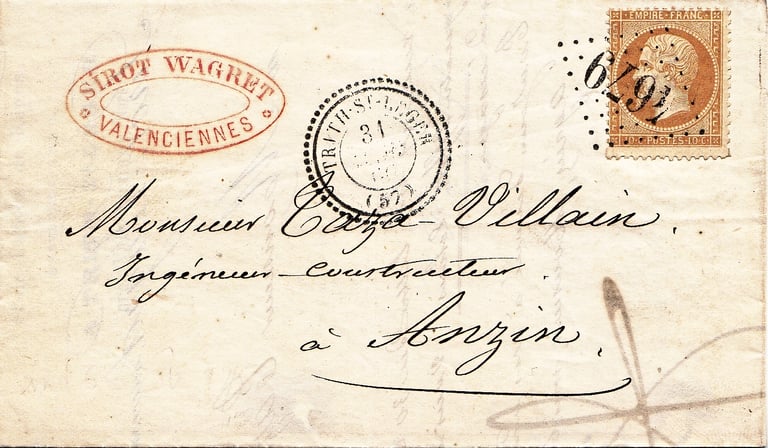 SIROT WAGRET
VALENCIENNES
TRITH-ST-LÉGER
31
(57)
EMPIRE FRANC
POSTES 10 C
Monsieur Caza-Villain.
Ingénieur-Constructeur.
à Anzin.